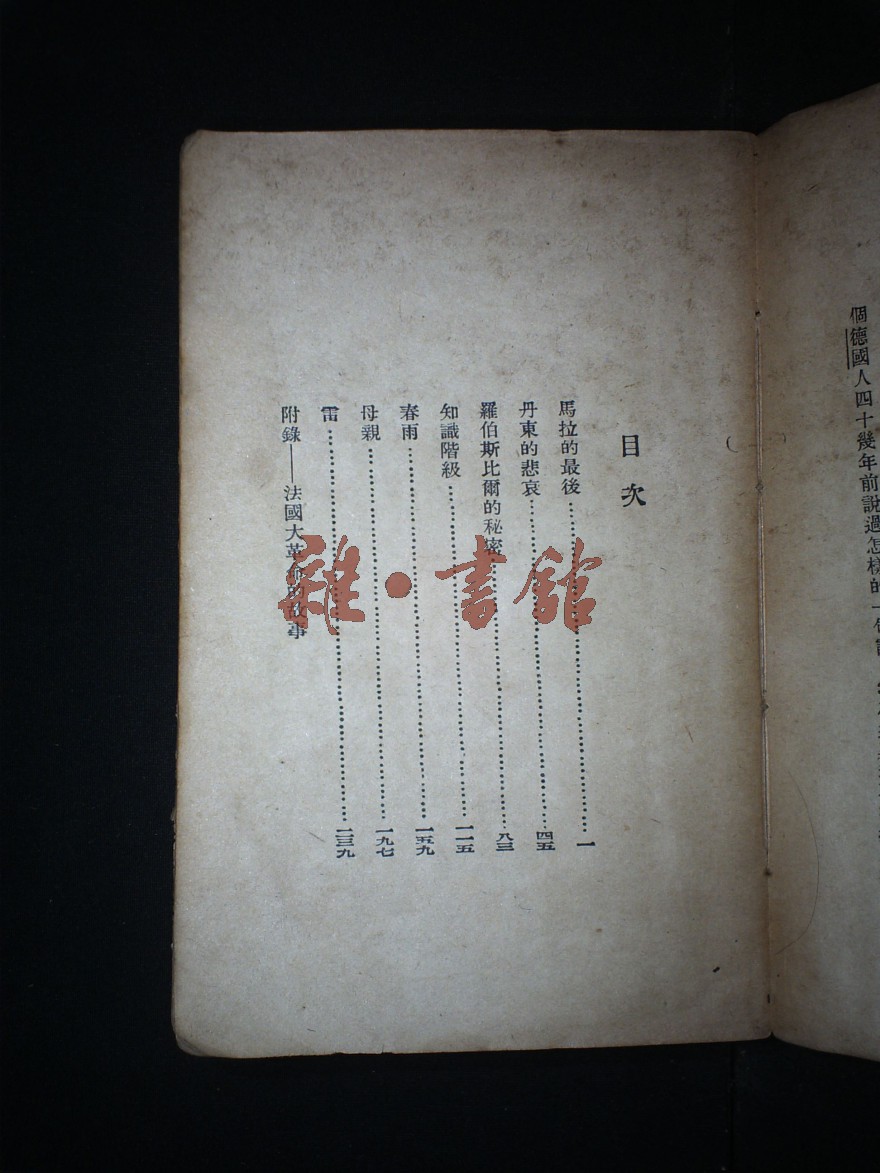 個德國人四十幾年前說過怎樣的一
目次
馬拉的最後……一
丹東的悲哀……四五
羅伯斯比爾的秘密……八三
知識階級……一一五
春雨……一五九
母親……一九七
雷……二三九
附錄——法國大革命的故事
雜·書館